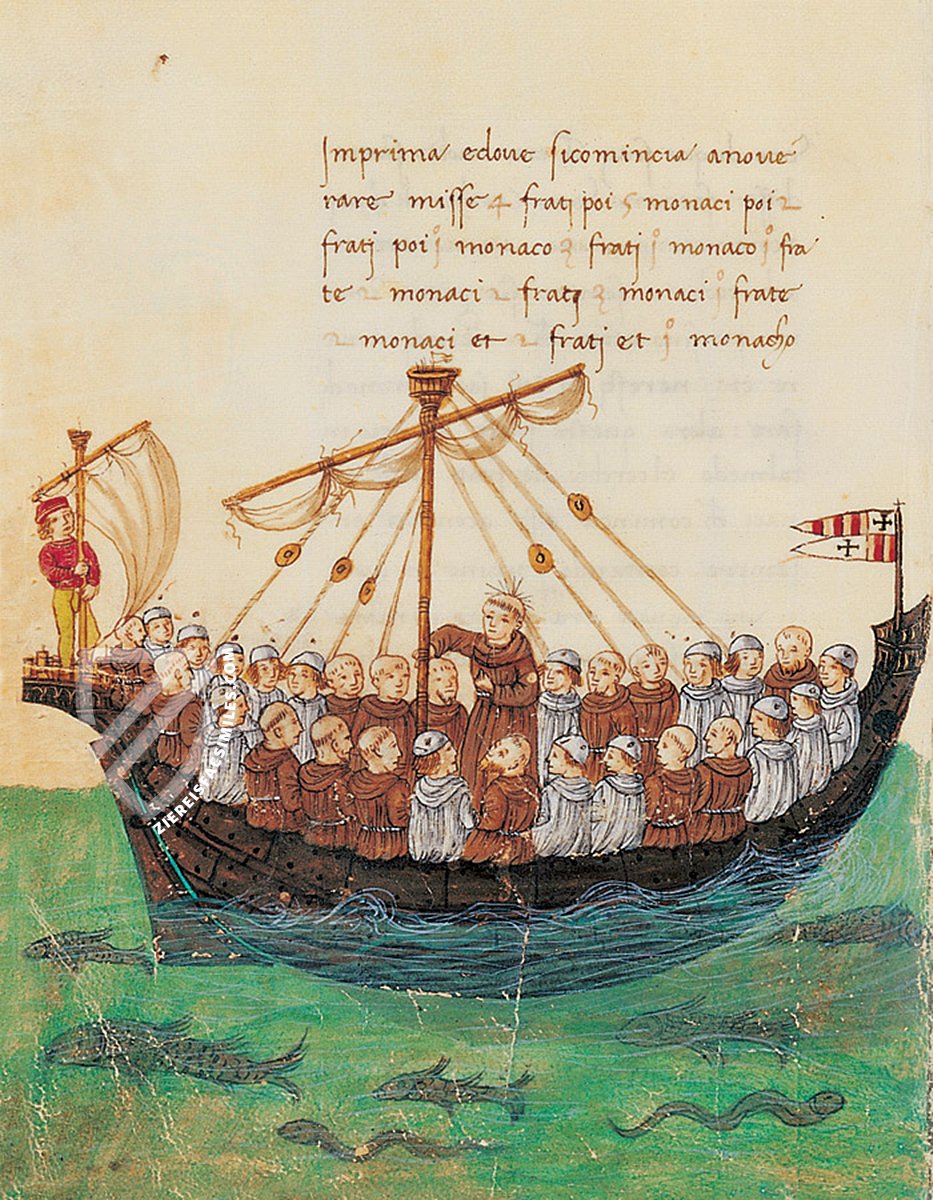 Imprima edove sicomincia anove
rare misse 4 frati poi 5 monaci poi 2
frati poi 1° monaco 3 frati 1° monaco 1° fra
te 2 monaci 2 frati 3 monaci 1° frate
2 monaci et 2 frati et 1° monacho
ZIEREIS FACSIMILES.COM